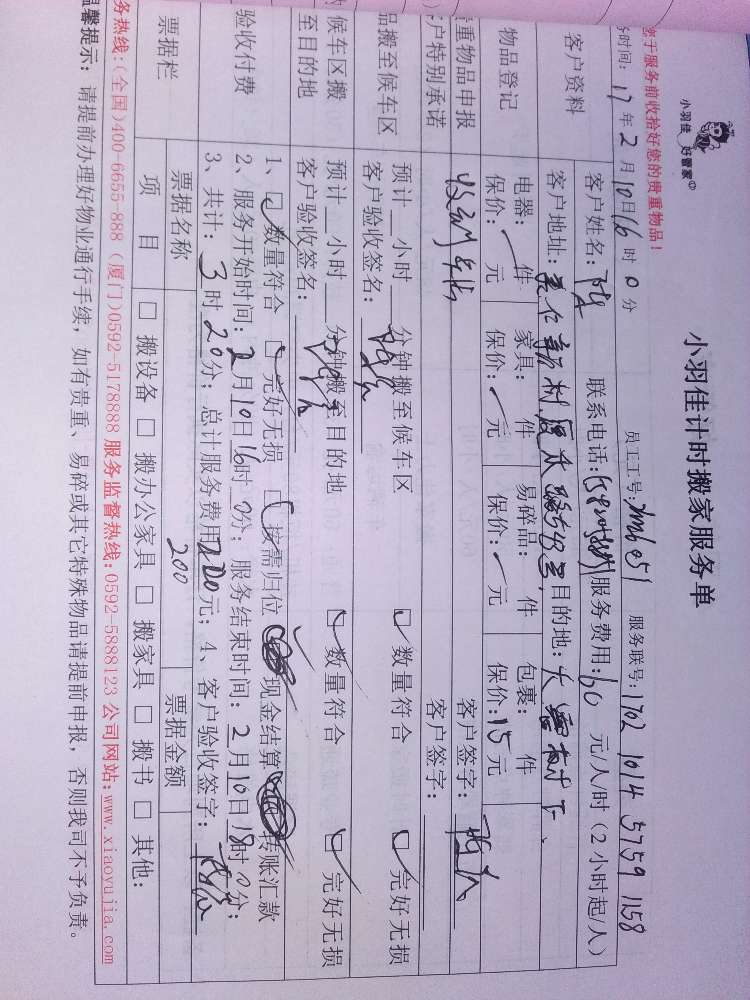 小羽佳 好管家
小羽佳计时搬家服务单
您于服务前收拾好您的贵重物品!
务时间: 17 年 2 月 10 日 16 时 0 分 员工工号: 服务联号: 1702 1014 5759 1158
客户资料
客户姓名: 联系电话: 服务费用: 60 元/人/时(2小时起/人)
客户地址: 目的地:
物品登记
电器: 件 家具: 件 易碎品: 件 包裹: 件
保价: 元 保价: 元 保价: 元 保价: 15 元
贵重物品申报 客户签字:
客户特别承诺 客户签字:
品搬至候车区
预计 小时 分钟搬至候车区 数量符合 完好无损
客户验收签名:
候车区搬至目的地
预计 小时 分钟搬至目的地 数量符合 完好无损
客户验收签名:
验收付费
1、 数量符合 完好无损 按需归位 现金结算 转账汇款
2、服务开始时间: 2 月 10 日 16 时 0 分; 服务结束时间: 2 月 10 日 18 时 0 分;
3、共计: 3 时 20 分; 总计服务费用 200 元; 4、客户验收签字:
票据栏
票据名称 200 票据金额
项 目 □ 搬设备 □ 搬办公家具 □ 搬家具 □ 搬书 □ 其他:
务热线:(全国)400-6655-888 (厦门)0592-5178888 服务监督热线:0592-5888123 公司网站:www.xiaoyujia.com
温馨提示: 请提前办理好物业通行手续, 如有贵重、易碎或其它特殊物品请提前申报, 否则我司不予负责。